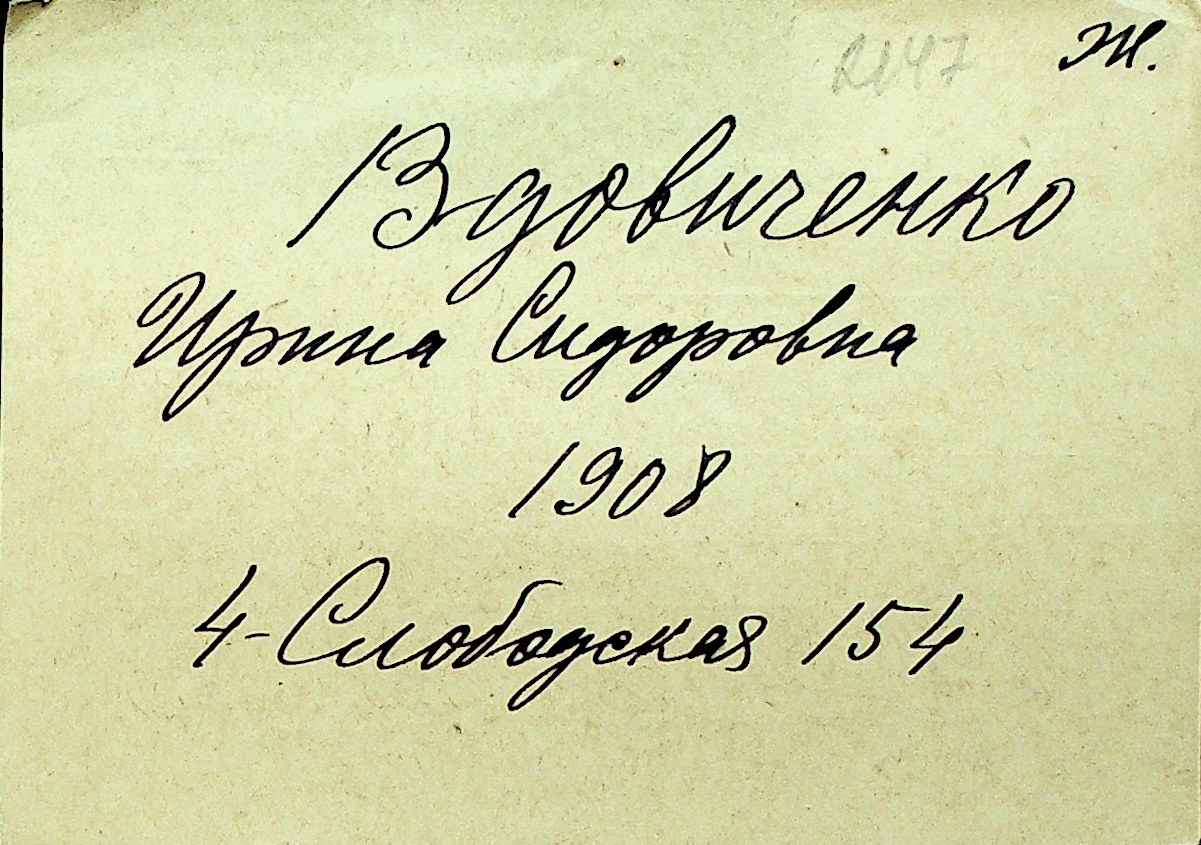 Ж.
Вдовиченко
Ирина Сидоровна
1908
4-Слободская 154